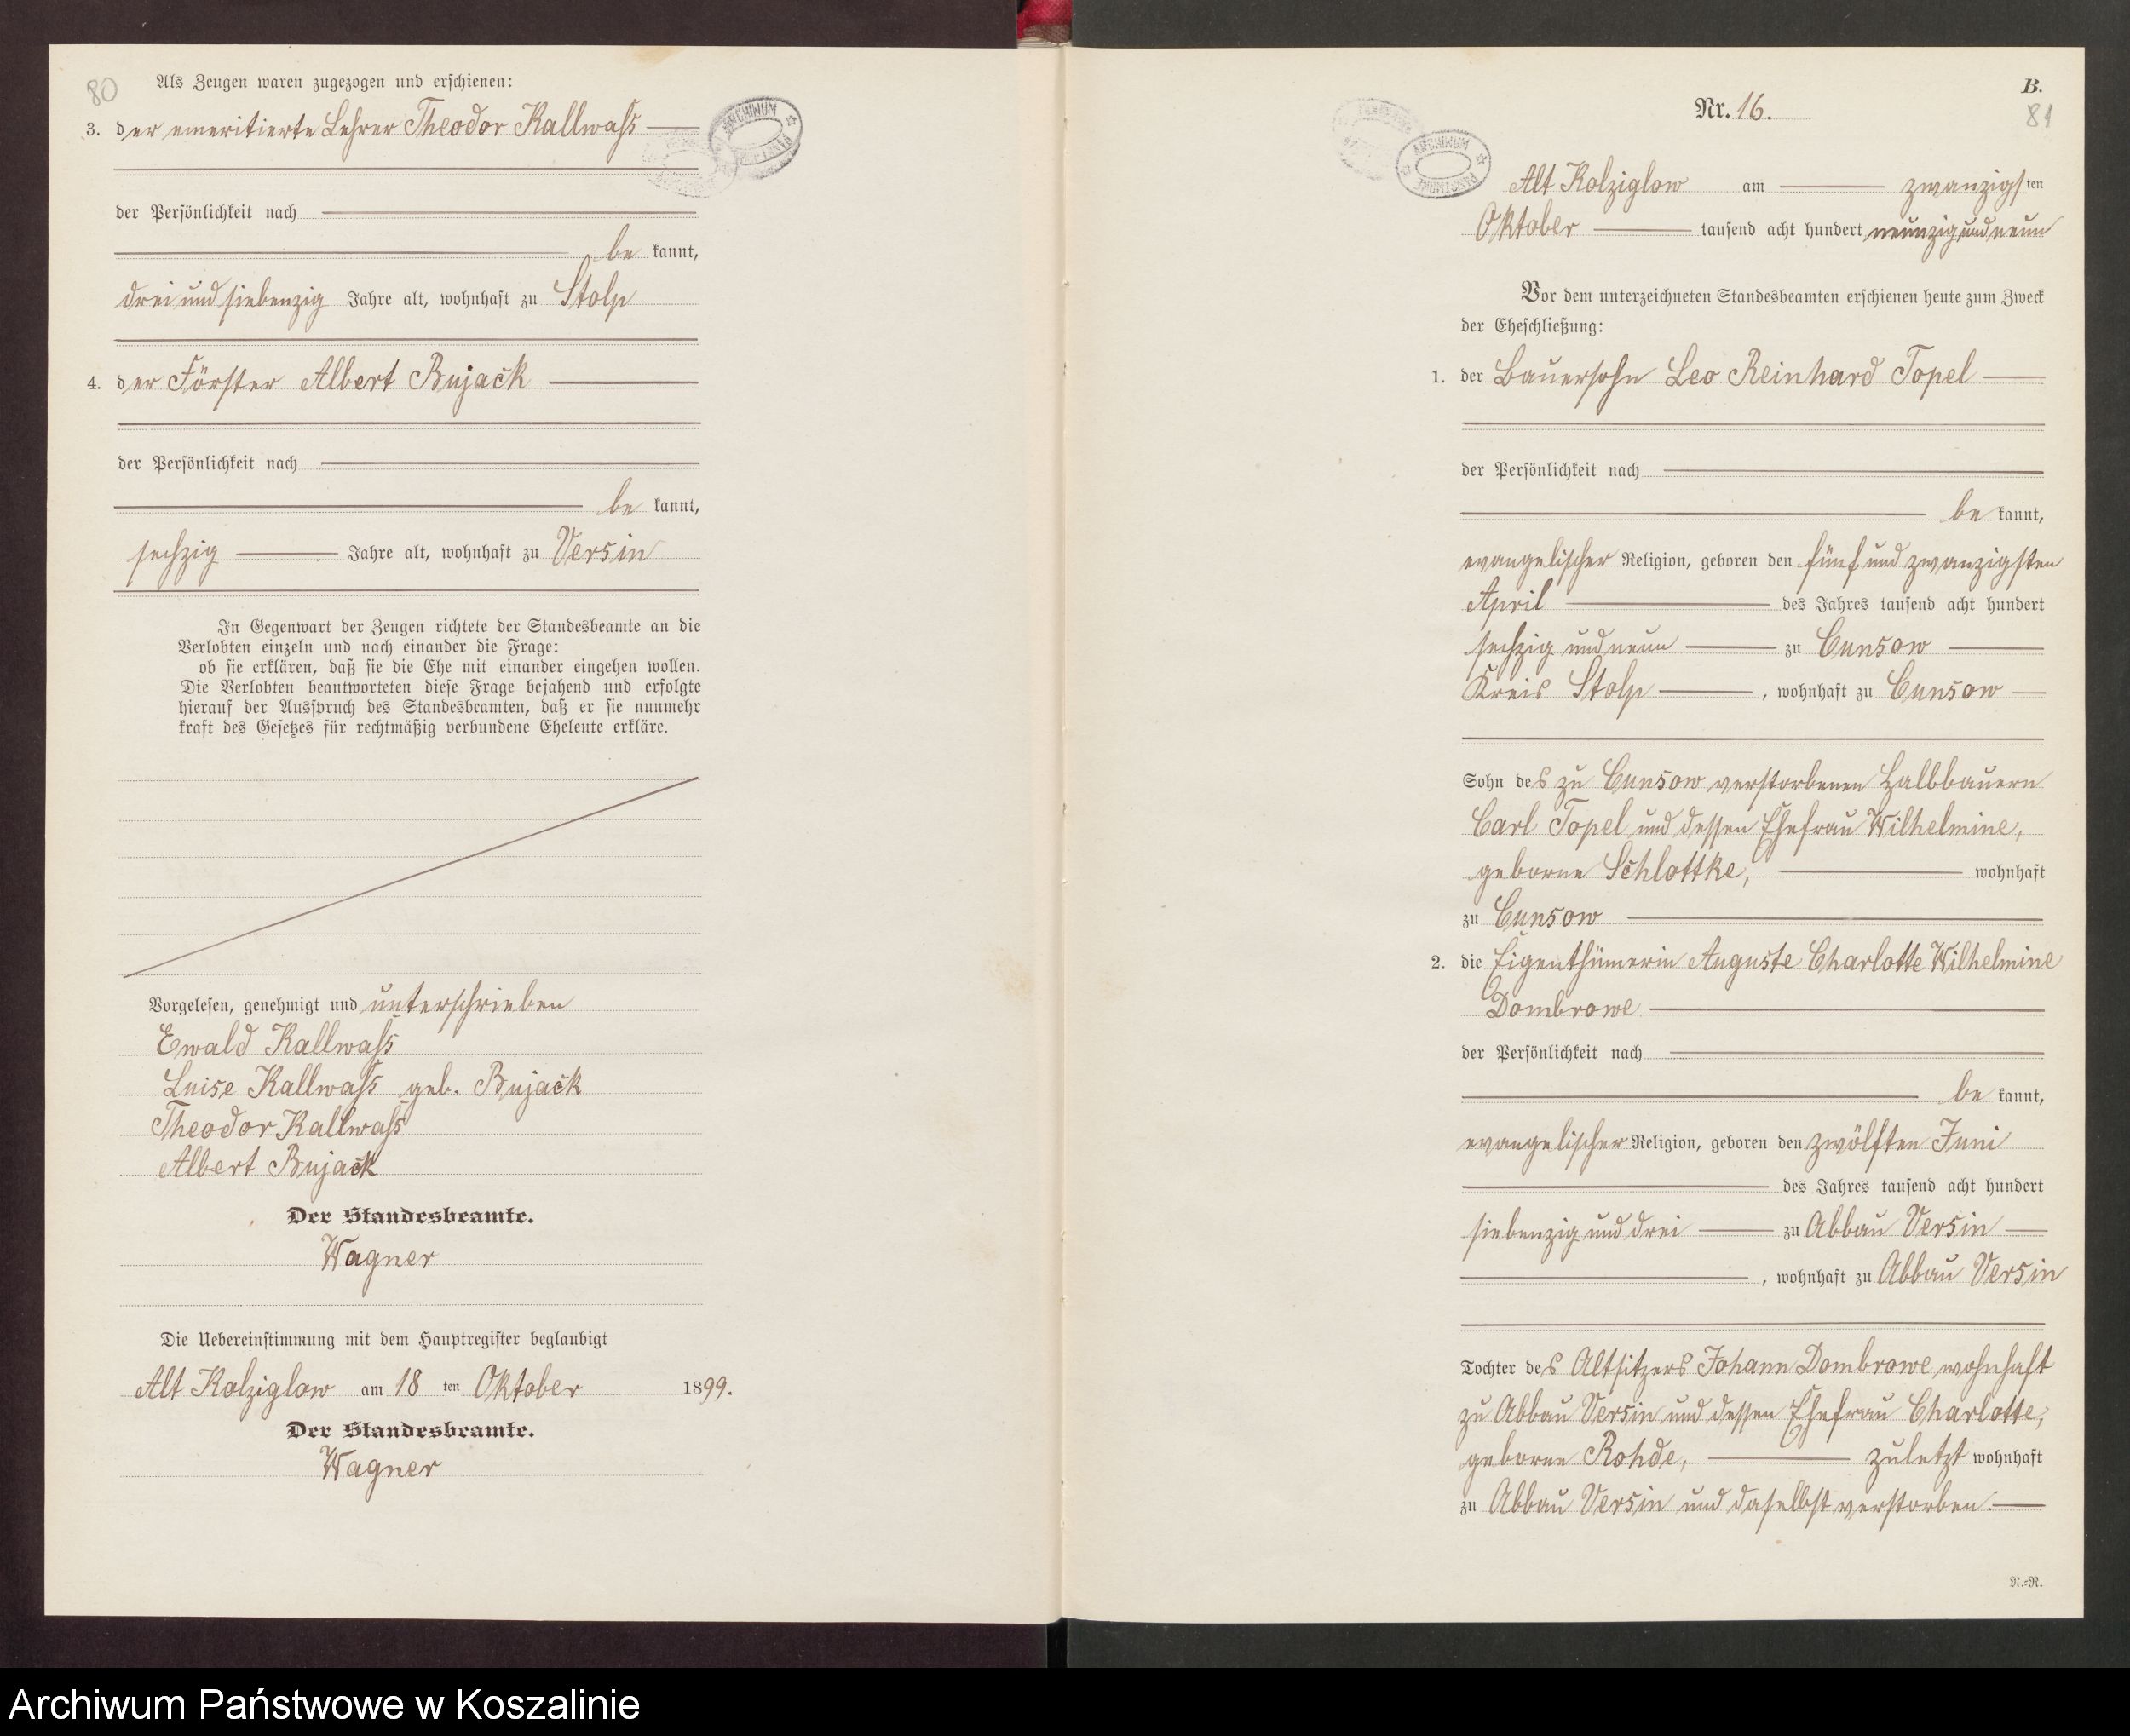 80
Als Zeugen waren zugezogen und erschienen:
3. der emeritierte Lehrer Theodor Kallwaß
der Persönlichkeit nach
be kannt,
drei und siebenzig Jahre alt, wohnhaft zu Stolp
4. der Förster Albert Bujack
der Persönlichkeit nach
be kannt,
sechzig Jahre alt, wohnhaft zu Versin
In Gegenwart der Zeugen richtete der Standesbeamte an die
Verlobten einzeln und nach einander die Frage:
ob sie erklären, daß sie die Ehe mit einander eingehen wollen.
Die Verlobten beantworteten diese Frage bejahend und erfolgte
hierauf der Ausspruch des Standesbeamten, daß er sie nunmehr
kraft des Gesetzes für rechtmäßig verbundene Eheleute erkläre.
Vorgelesen, genehmigt und unterschrieben
Ewald Kallwaß
Luise Kallwaß geb. Bujack
Theodor Kallwaß
Albert Bujack
Der Standesbeamte.
Wagner
Die Uebereinstimmung mit dem Hauptregister beglaubigt
Alt Kolziglow am 18 ten Oktober 1899.
Der Standesbeamte.
Wagner
ARCHIWUM
B.
Nr. 16.
81
ARCHIWUM
Alt Kolziglow am zwanzigsten
Oktober tausend acht hundert neunzig und neun
Vor dem unterzeichneten Standesbeamten erschienen heute zum Zweck
der Eheschließung:
1. der Bauersohn Leo Reinhard Topel
der Persönlichkeit nach
be kannt,
evangelischer Religion, geboren den fünf und zwanzigsten
April des Jahres tausend acht hundert
sechzig und neun zu Cunsow
Kreis Stolp, wohnhaft zu Cunsow
Sohn des zu Cunsow verstorbenen Halbbauern
Carl Topel und dessen Ehefrau Wilhelmine,
geborne Schlottke, wohnhaft
zu Cunsow
2. die Eigenthümerin Auguste Charlotte Wilhelmine
Dombrowe
der Persönlichkeit nach
be kannt,
evangelischer Religion, geboren den zwölften Juni
des Jahres tausend acht hundert
siebenzig und drei zu Abbau Versin
, wohnhaft zu Abbau Versin
Tochter des Altsitzers Johann Dombrowe wohnhaft
zu Abbau Versin und dessen Ehefrau Charlotte,
geborne Rohde, zuletzt wohnhaft
zu Abbau Versin und daselbst verstorben.
N.=N.
Archiwum Państwowe w Koszalinie